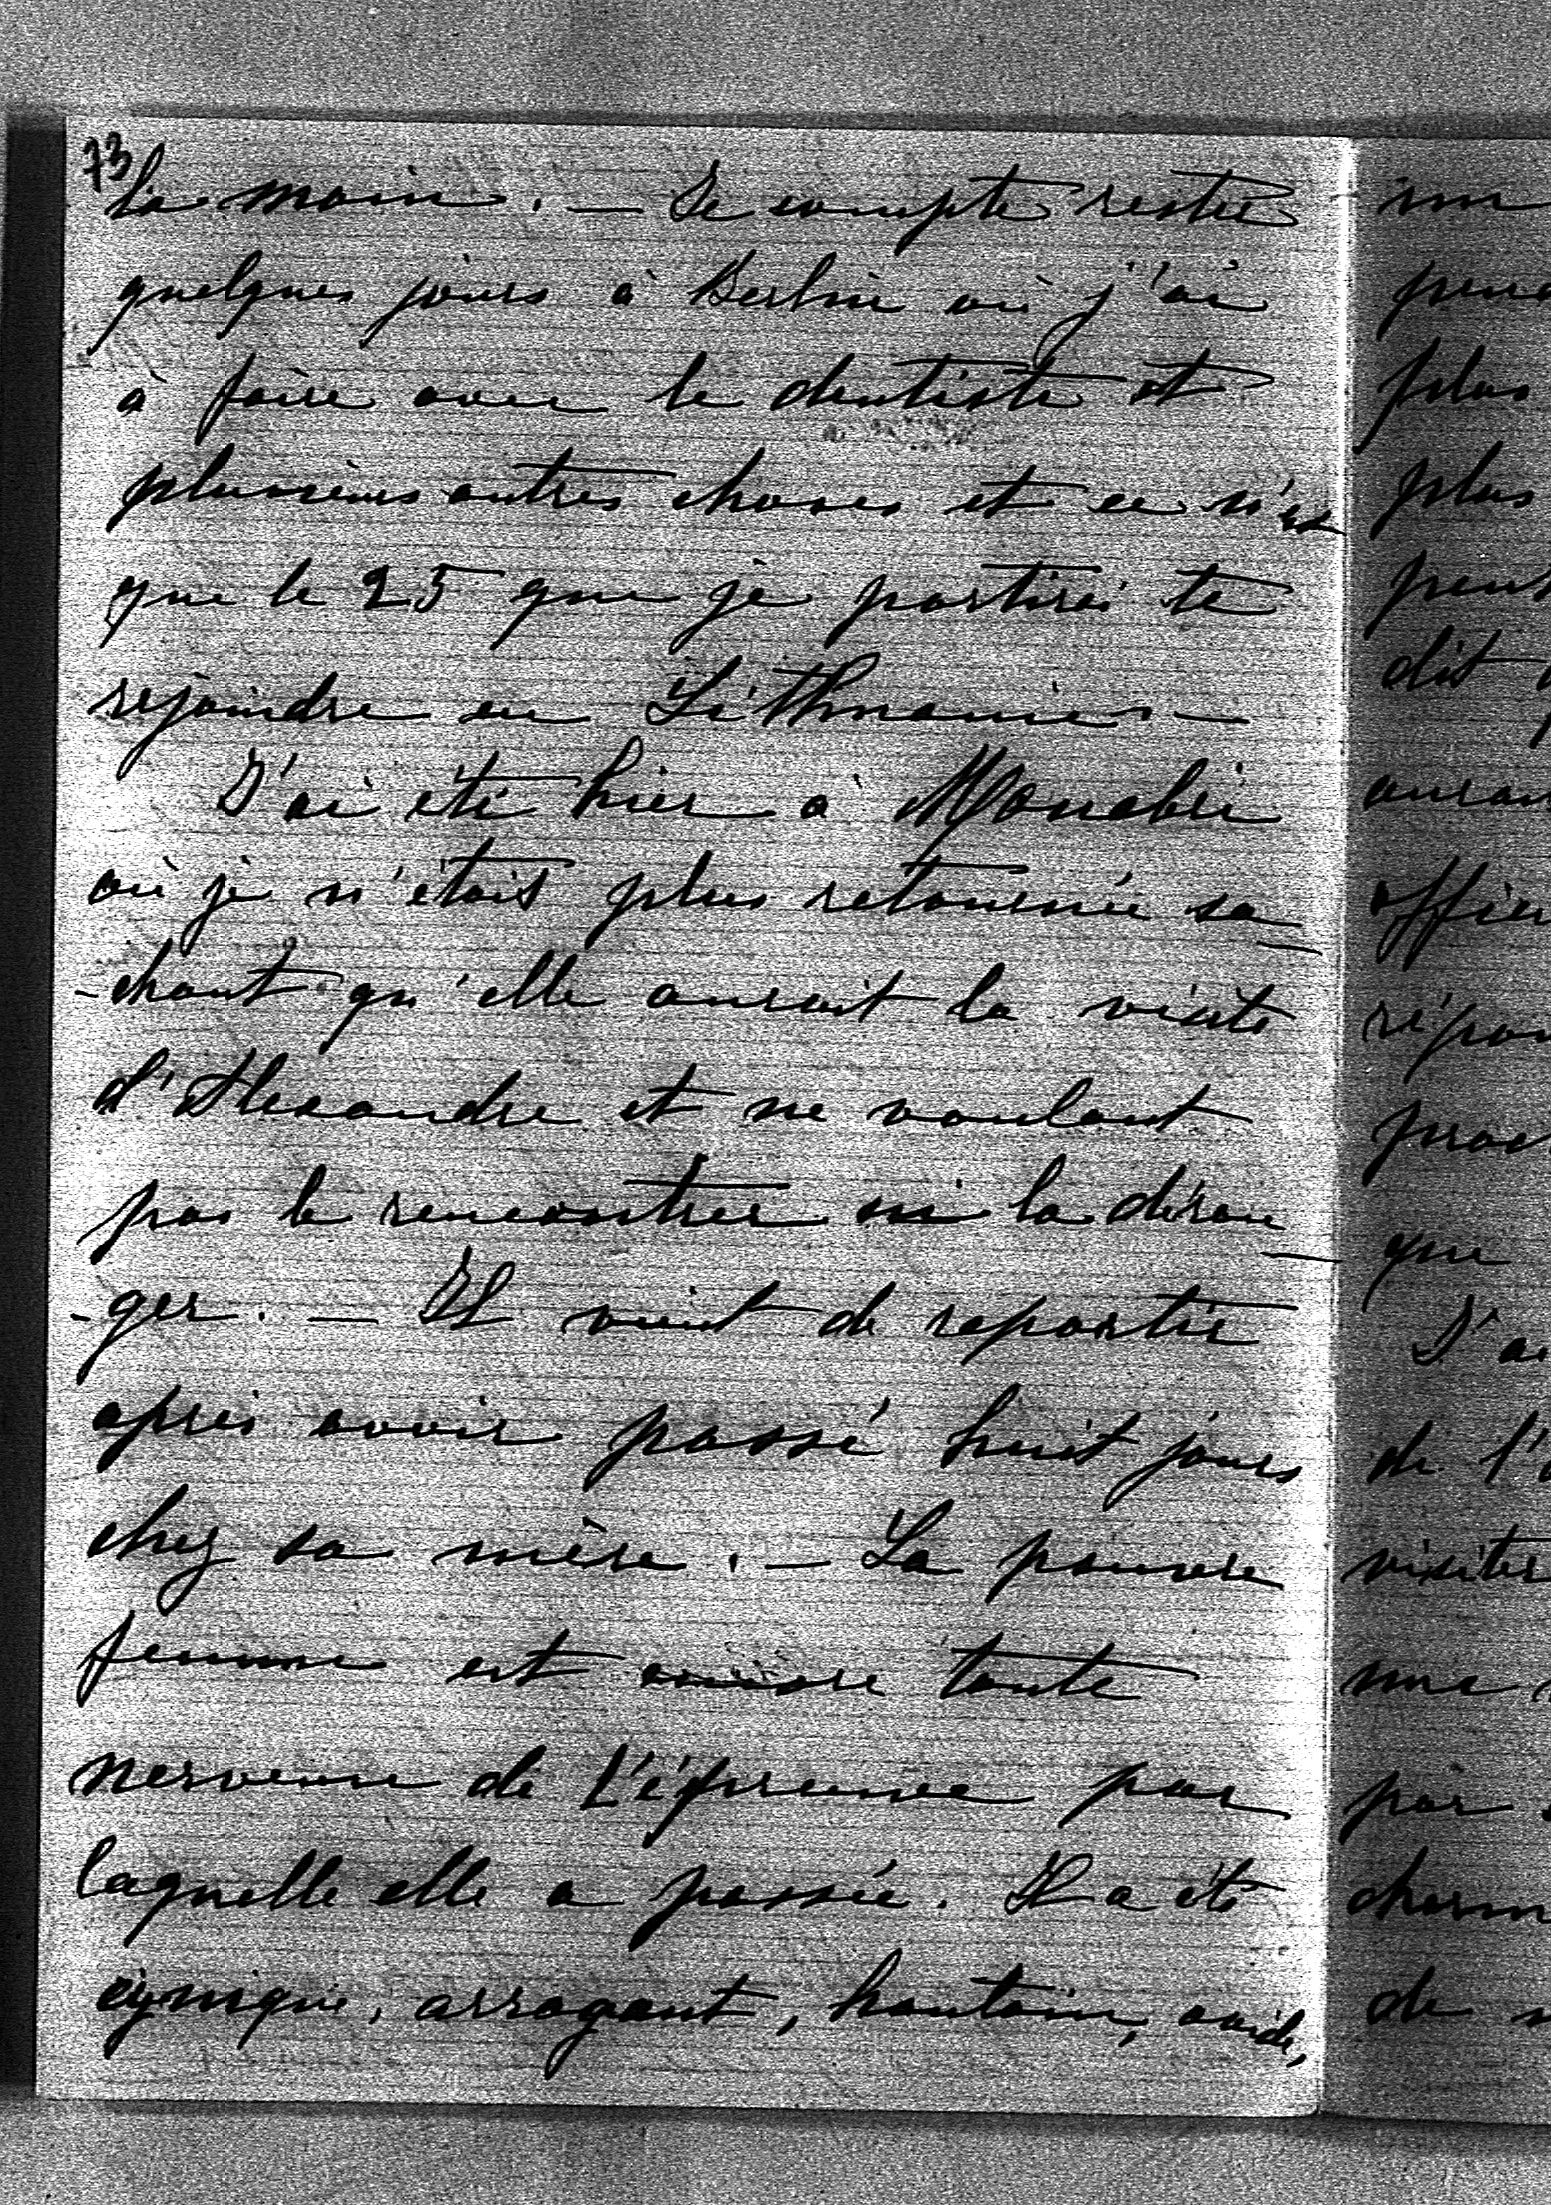 73
la main. — Je compte rester
quelques jours à Berlin où j'ai
à faire avec le dentiste et
plusieurs autres choses et ce n'est
que le 25 que je partirai te
rejoindre en Lithuanie. —
J'ai été hier à Monabri
où je n'étais plus retournée sa
-chant qu'elle aurait la visite
d'Alexandre et ne voulant
pas le rencontrer ni la déran
-ger. — Il vient de repartir
après avoir passé huit jours
chez sa mère. — La pauvre
femme est encore toute
nerveuse de l'épreuve par
laquelle elle a passée. Il a été
cynique, arrogant, hautain, avide,
plus
plus
dit
répon
que
J'ai
de l'
visiter
une
par
charm
de